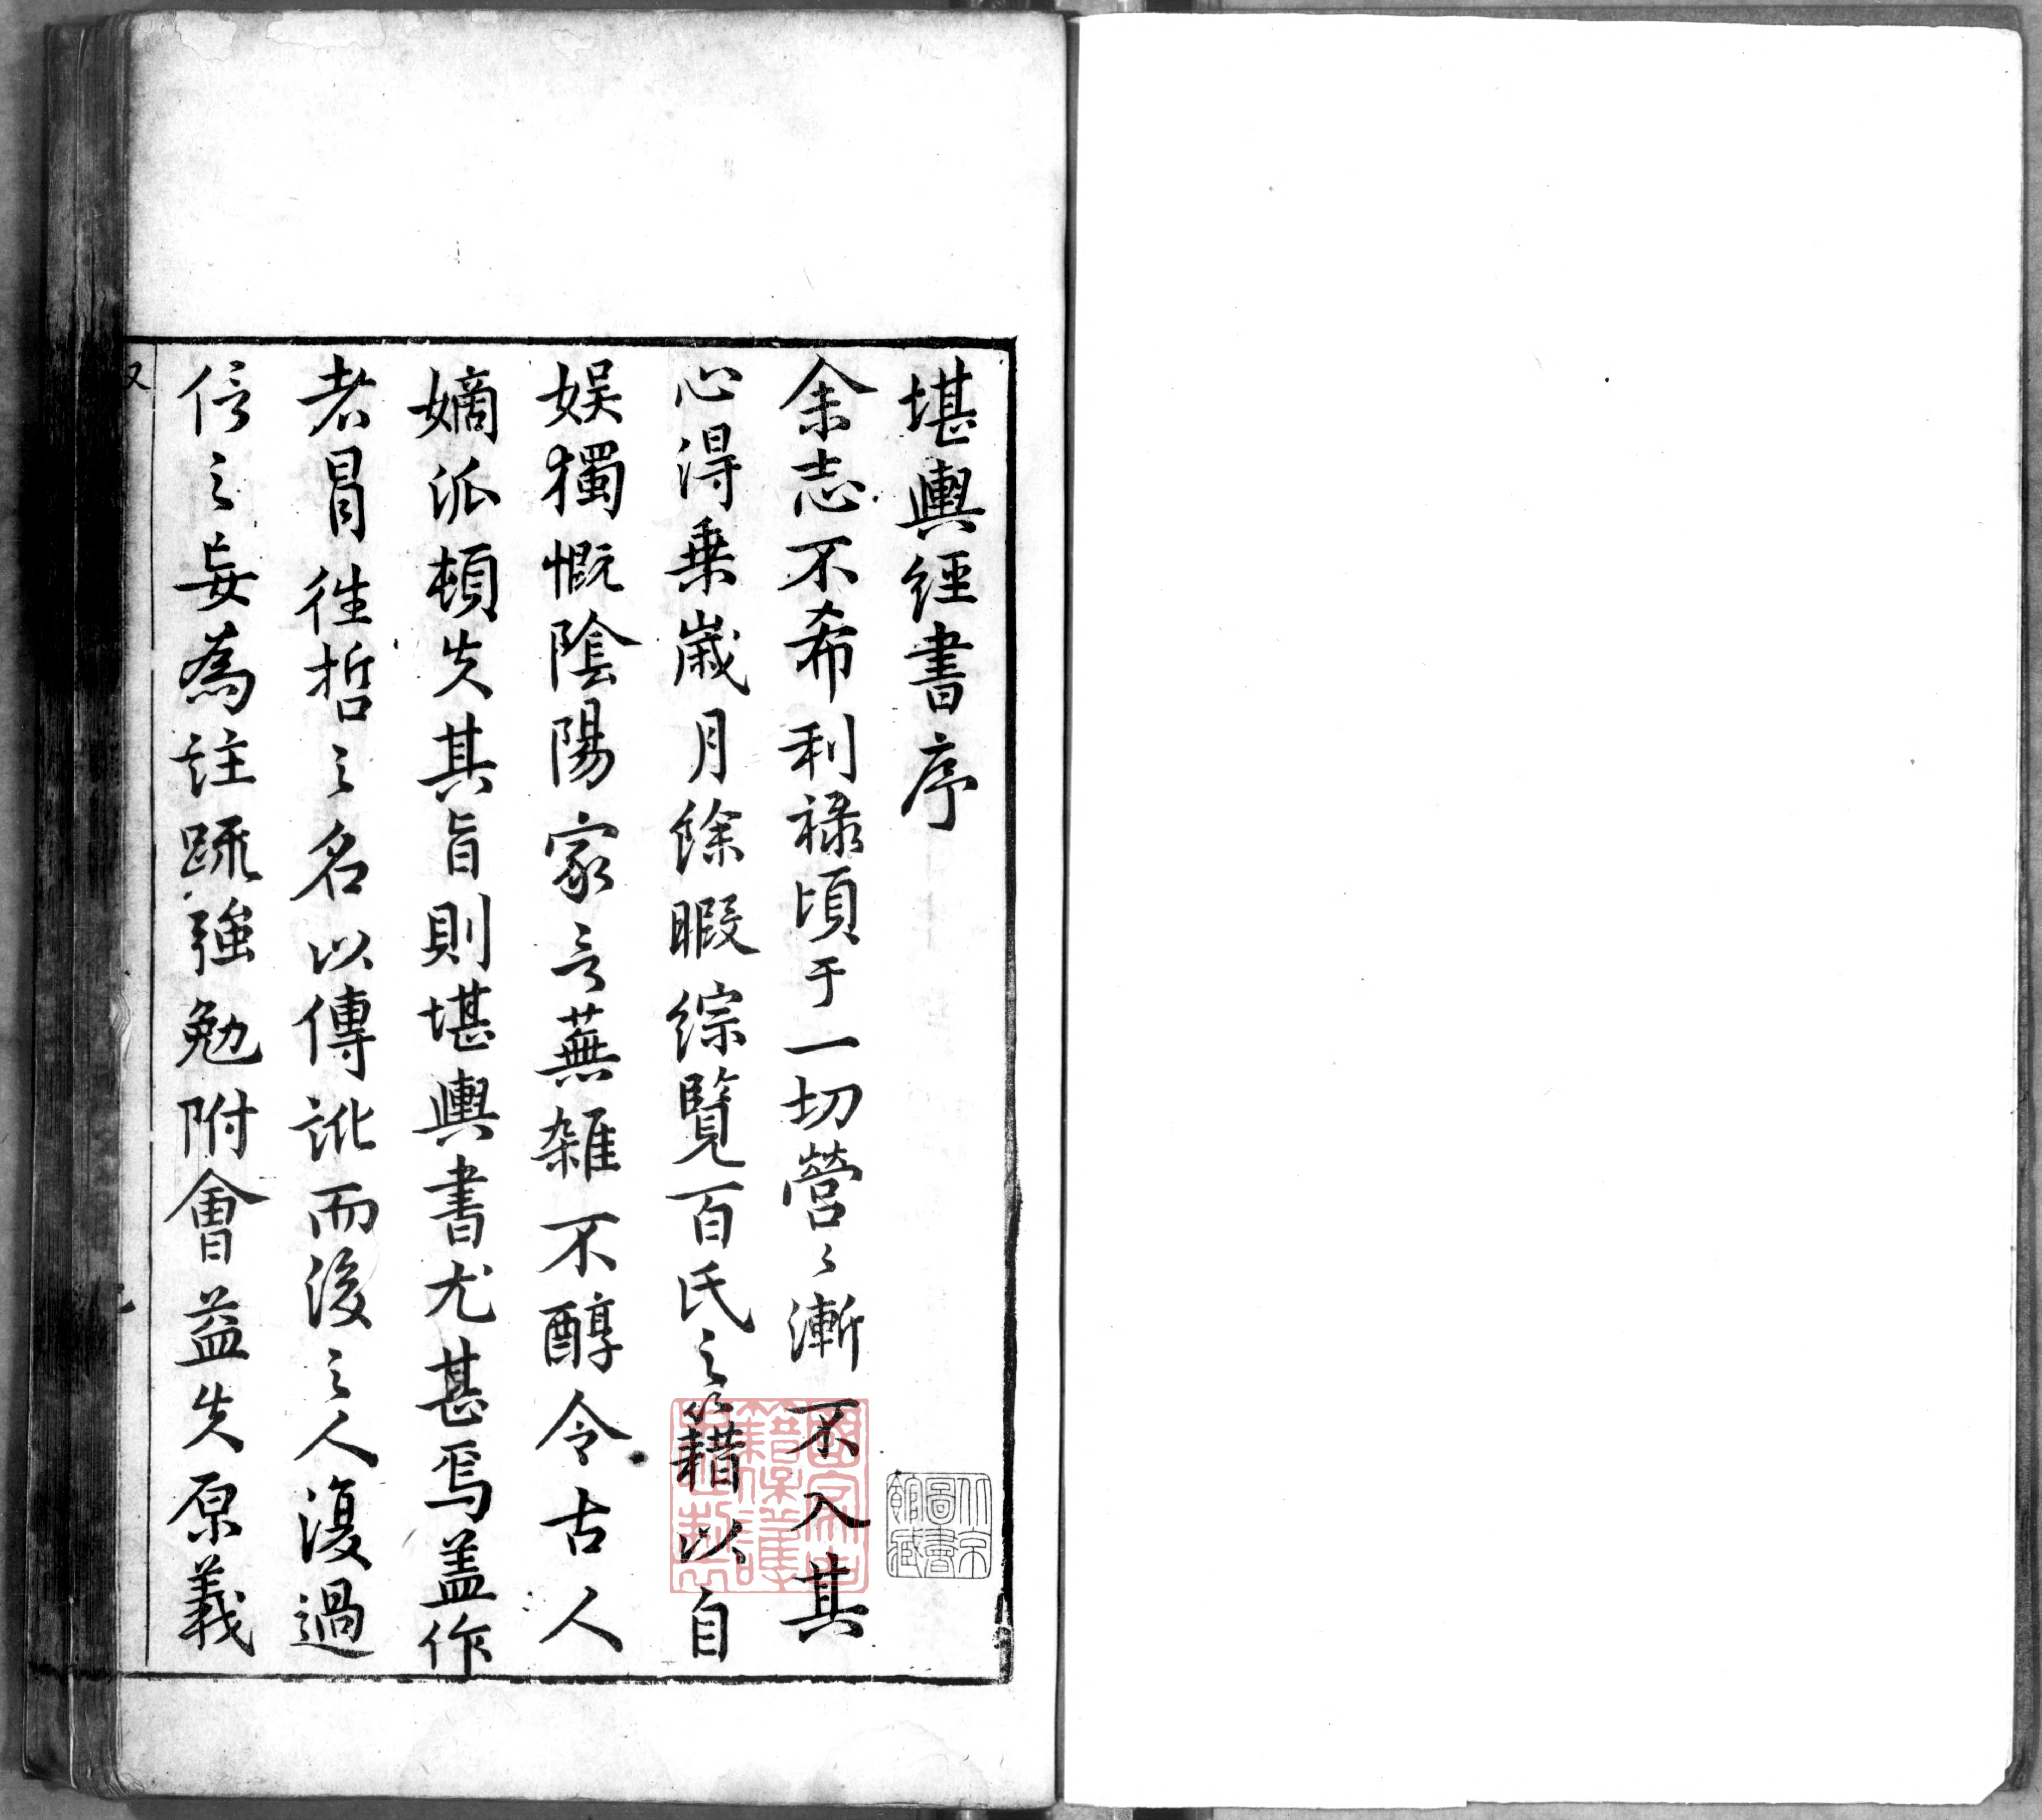 堪輿經書序
余志不希利祿頃于一切營〻漸不入其
心得乗歲月餘暇綜覽百氏之籍以自
娱獨慨陰陽家言蕪雜不醇令古人
嫡派頓失其旨則堪輿書尤甚焉盖作
者冒徃哲之名以傳訛而後之人復過
信之妄為註䟽強勉附會益失原義
北京圖書館藏